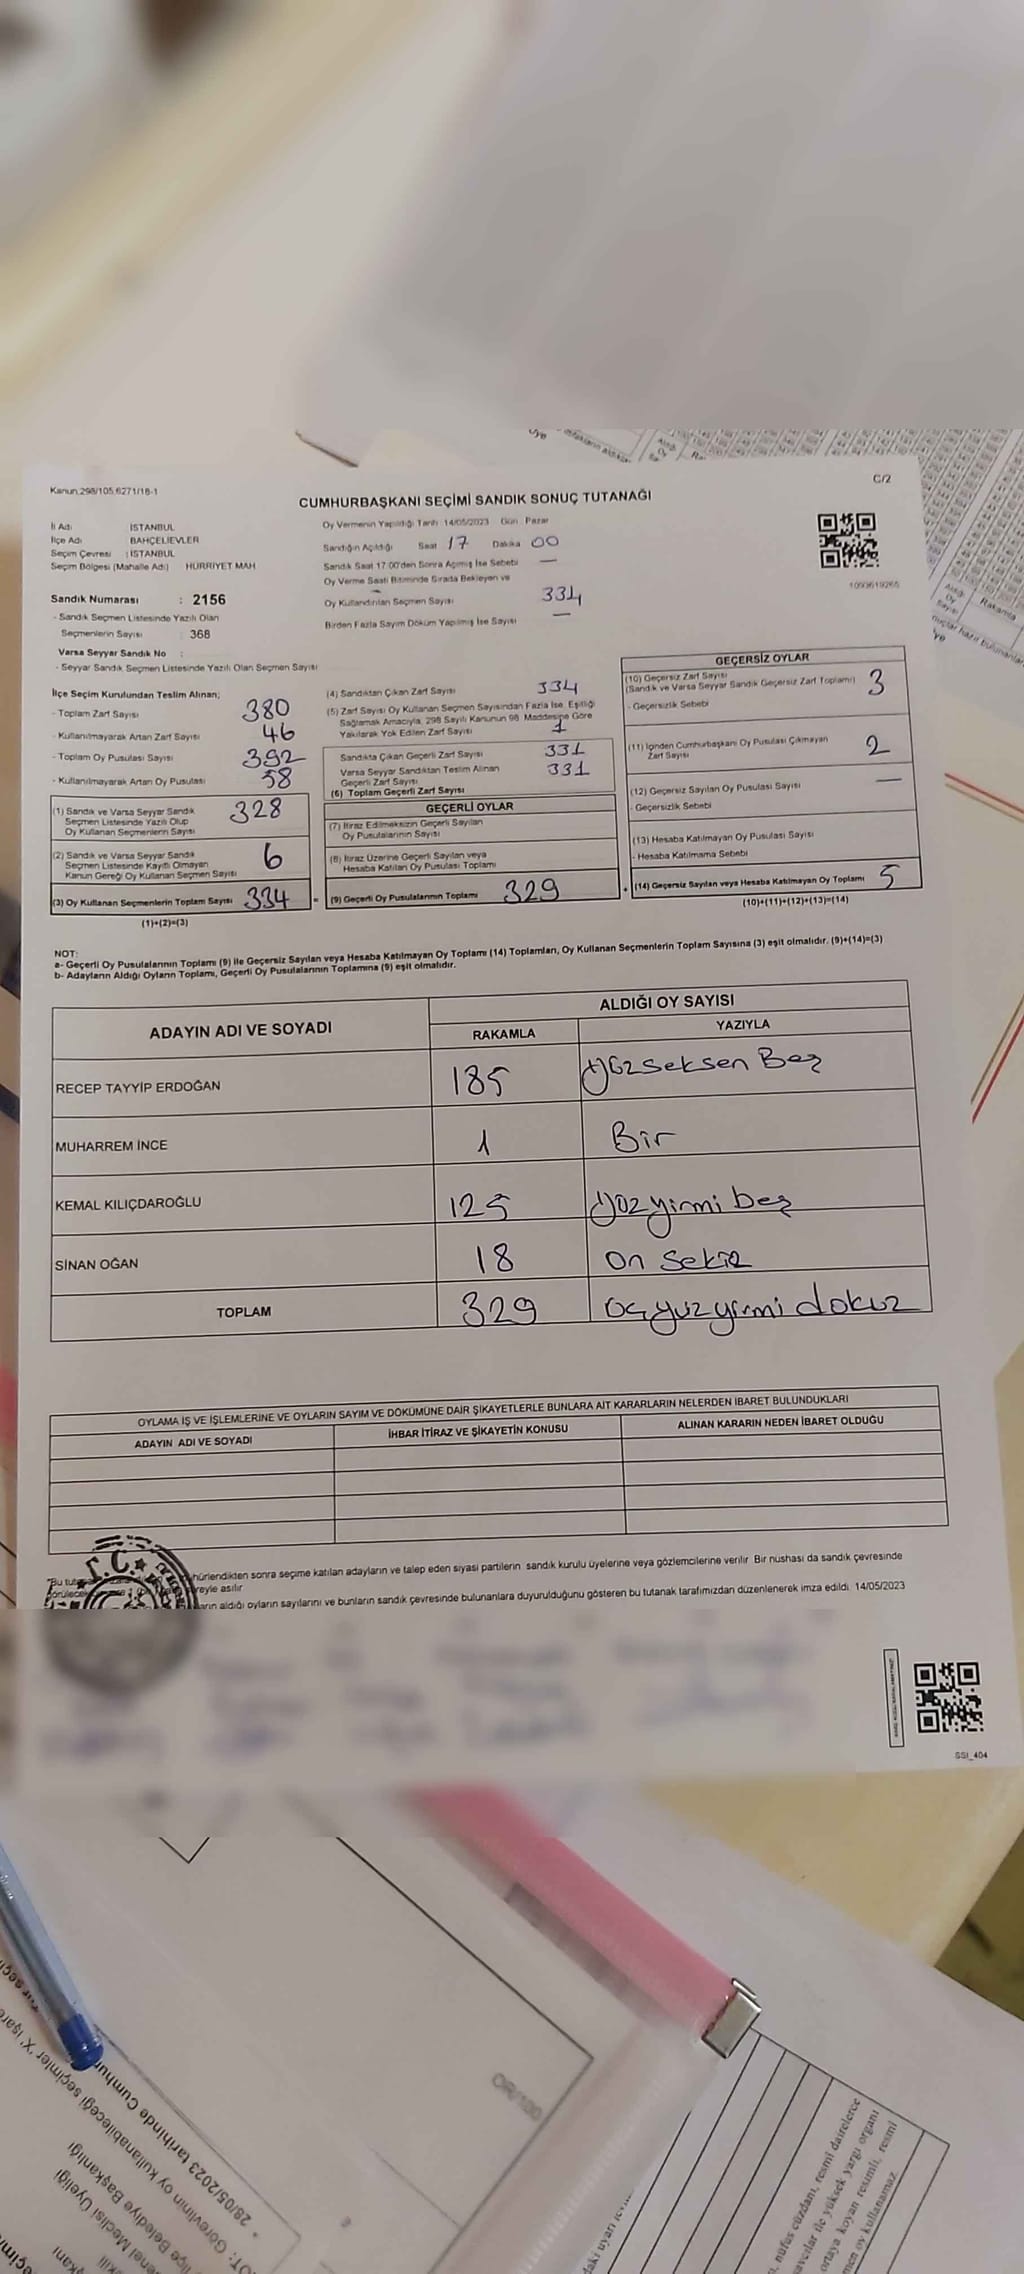 Kanun,298/105,6271/18-1
C/2
CUMHURBAŞKANI SEÇİMİ SANDIK SONUÇ TUTANAĞI
İl Adı : İSTANBUL
İlçe Adı BAHÇELİEVLER
Seçim Çevresi : İSTANBUL
Seçim Bölgesi (Mahalle Adı) HÜRRİYET MAH
Sandık Numarası : 2156
- Sandık Seçmen Listesinde Yazılı Olan
Seçmenlerin Sayısı : 368
Varsa Seyyar Sandık No :
- Seyyar Sandık Seçmen Listesinde Yazılı Olan Seçmen Sayısı
Oy Vermenin Yapıldığı Tarih 14/05/2023 Gün Pazar
Sandığın Açıldığı Saat 17 Dakika 00
Sandık Saat 17:00'den Sonra Açılmış İse Sebebi —
Oy Verme Saati Bitiminde Sırada Bekleyen ve
Oy Kullandırılan Seçmen Sayısı 334
Birden Fazla Sayım Döküm Yapılmış İse Sayısı —
1093619265
İlçe Seçim Kurulundan Teslim Alınan;
- Toplam Zarf Sayısı 380
- Kullanılmayarak Artan Zarf Sayısı 46
- Toplam Oy Pusulası Sayısı 392
- Kullanılmayarak Artan Oy Pusulası 58
(1) Sandık ve Varsa Seyyar Sandık
Seçmen Listesinde Yazılı Olup
Oy Kullanan Seçmenlerin Sayısı 328
(2) Sandık ve Varsa Seyyar Sandık
Seçmen Listesinde Kayıtlı Olmayan
Kanun Gereği Oy Kullanan Seçmen Sayısı 6
(3) Oy Kullanan Seçmenlerin Toplam Sayısı 334 =
(1)+(2)=(3)
(4) Sandıktan Çıkan Zarf Sayısı 334
(5) Zarf Sayısı Oy Kullanan Seçmen Sayısından Fazla İse, Eşitliği
Sağlamak Amacıyla, 298 Sayılı Kanunun 98. Maddesine Göre
Yakılarak Yok Edilen Zarf Sayısı 1
Sandıkta Çıkan Geçerli Zarf Sayısı 331
Varsa Seyyar Sandıktan Teslim Alınan
Geçerli Zarf Sayısı 331
(6) Toplam Geçerli Zarf Sayısı
GEÇERLİ OYLAR
(7) İtiraz Edilmeksizin Geçerli Sayılan
Oy Pusulalarının Sayısı
(8) İtiraz Üzerine Geçerli Sayılan veya
Hesaba Katılan Oy Pusulası Toplamı
(9) Geçerli Oy Pusulalarının Toplamı 329 +
GEÇERSİZ OYLAR
(10) Geçersiz Zarf Sayısı
(Sandık ve Varsa Seyyar Sandık Geçersiz Zarf Toplamı) 3
- Geçersizlik Sebebi
(11) İçinden Cumhurbaşkanı Oy Pusulası Çıkmayan
Zarf Sayısı 2
(12) Geçersiz Sayılan Oy Pusulası Sayısı —
- Geçersizlik Sebebi
(13) Hesaba Katılmayan Oy Pusulası Sayısı
- Hesaba Katılmama Sebebi
(14) Geçersiz Sayılan veya Hesaba Katılmayan Oy Toplamı 5
(10)+(11)+(12)+(13)=(14)
NOT:
a- Geçerli Oy Pusulalarının Toplamı (9) ile Geçersiz Sayılan veya Hesaba Katılmayan Oy Toplamı (14) Toplamları, Oy Kullanan Seçmenlerin Toplam Sayısına (3) eşit olmalıdır. (9)+(14)=(3)
b- Adayların Aldığı Oyların Toplamı, Geçerli Oy Pusulalarının Toplamına (9) eşit olmalıdır.
ADAYIN ADI VE SOYADI
ALDIĞI OY SAYISI
RAKAMLA YAZIYLA
RECEP TAYYİP ERDOĞAN 185 Yüzseksen Beş
MUHARREM İNCE 1 Bir
KEMAL KILIÇDAROĞLU 125 Yüzyirmi beş
SİNAN OĞAN 18 On Sekiz
TOPLAM 329 üçyüzyirmi dokuz
OYLAMA İŞ VE İŞLEMLERİNE VE OYLARIN SAYIM VE DÖKÜMÜNE DAİR ŞİKAYETLERLE BUNLARA AİT KARARLARIN NELERDEN İBARET BULUNDUKLARI
ADAYIN ADI VE SOYADI İHBAR İTİRAZ VE ŞİKAYETİN KONUSU ALINAN KARARIN NEDEN İBARET OLDUĞU
T.C.
hürlendikten sonra seçime katılan adayların ve talep eden siyasi partilerin sandık kurulu üyelerine veya gözlemcilerine verilir. Bir nüshası da sandık çevresinde
reyle asılır
arın aldığı oyların sayılarını ve bunların sandık çevresinde bulunanlara duyurulduğunu gösteren bu tutanak tarafımızdan düzenlenerek imza edildi. 14/05/2023
SSI_404
28/05/2023 tarihinde Cumhur
OT: Görevlinin oy kullanabileceği seçimler 'X' işare
İlçe Belediye Başkanlığı
enel Meclisi Üyeliği
nüfus cüzdanı, resmi dairelerce
avcılar ile yüksek yargı organı
ortaya koyan resimli, resmi
men oy kullanamaz.